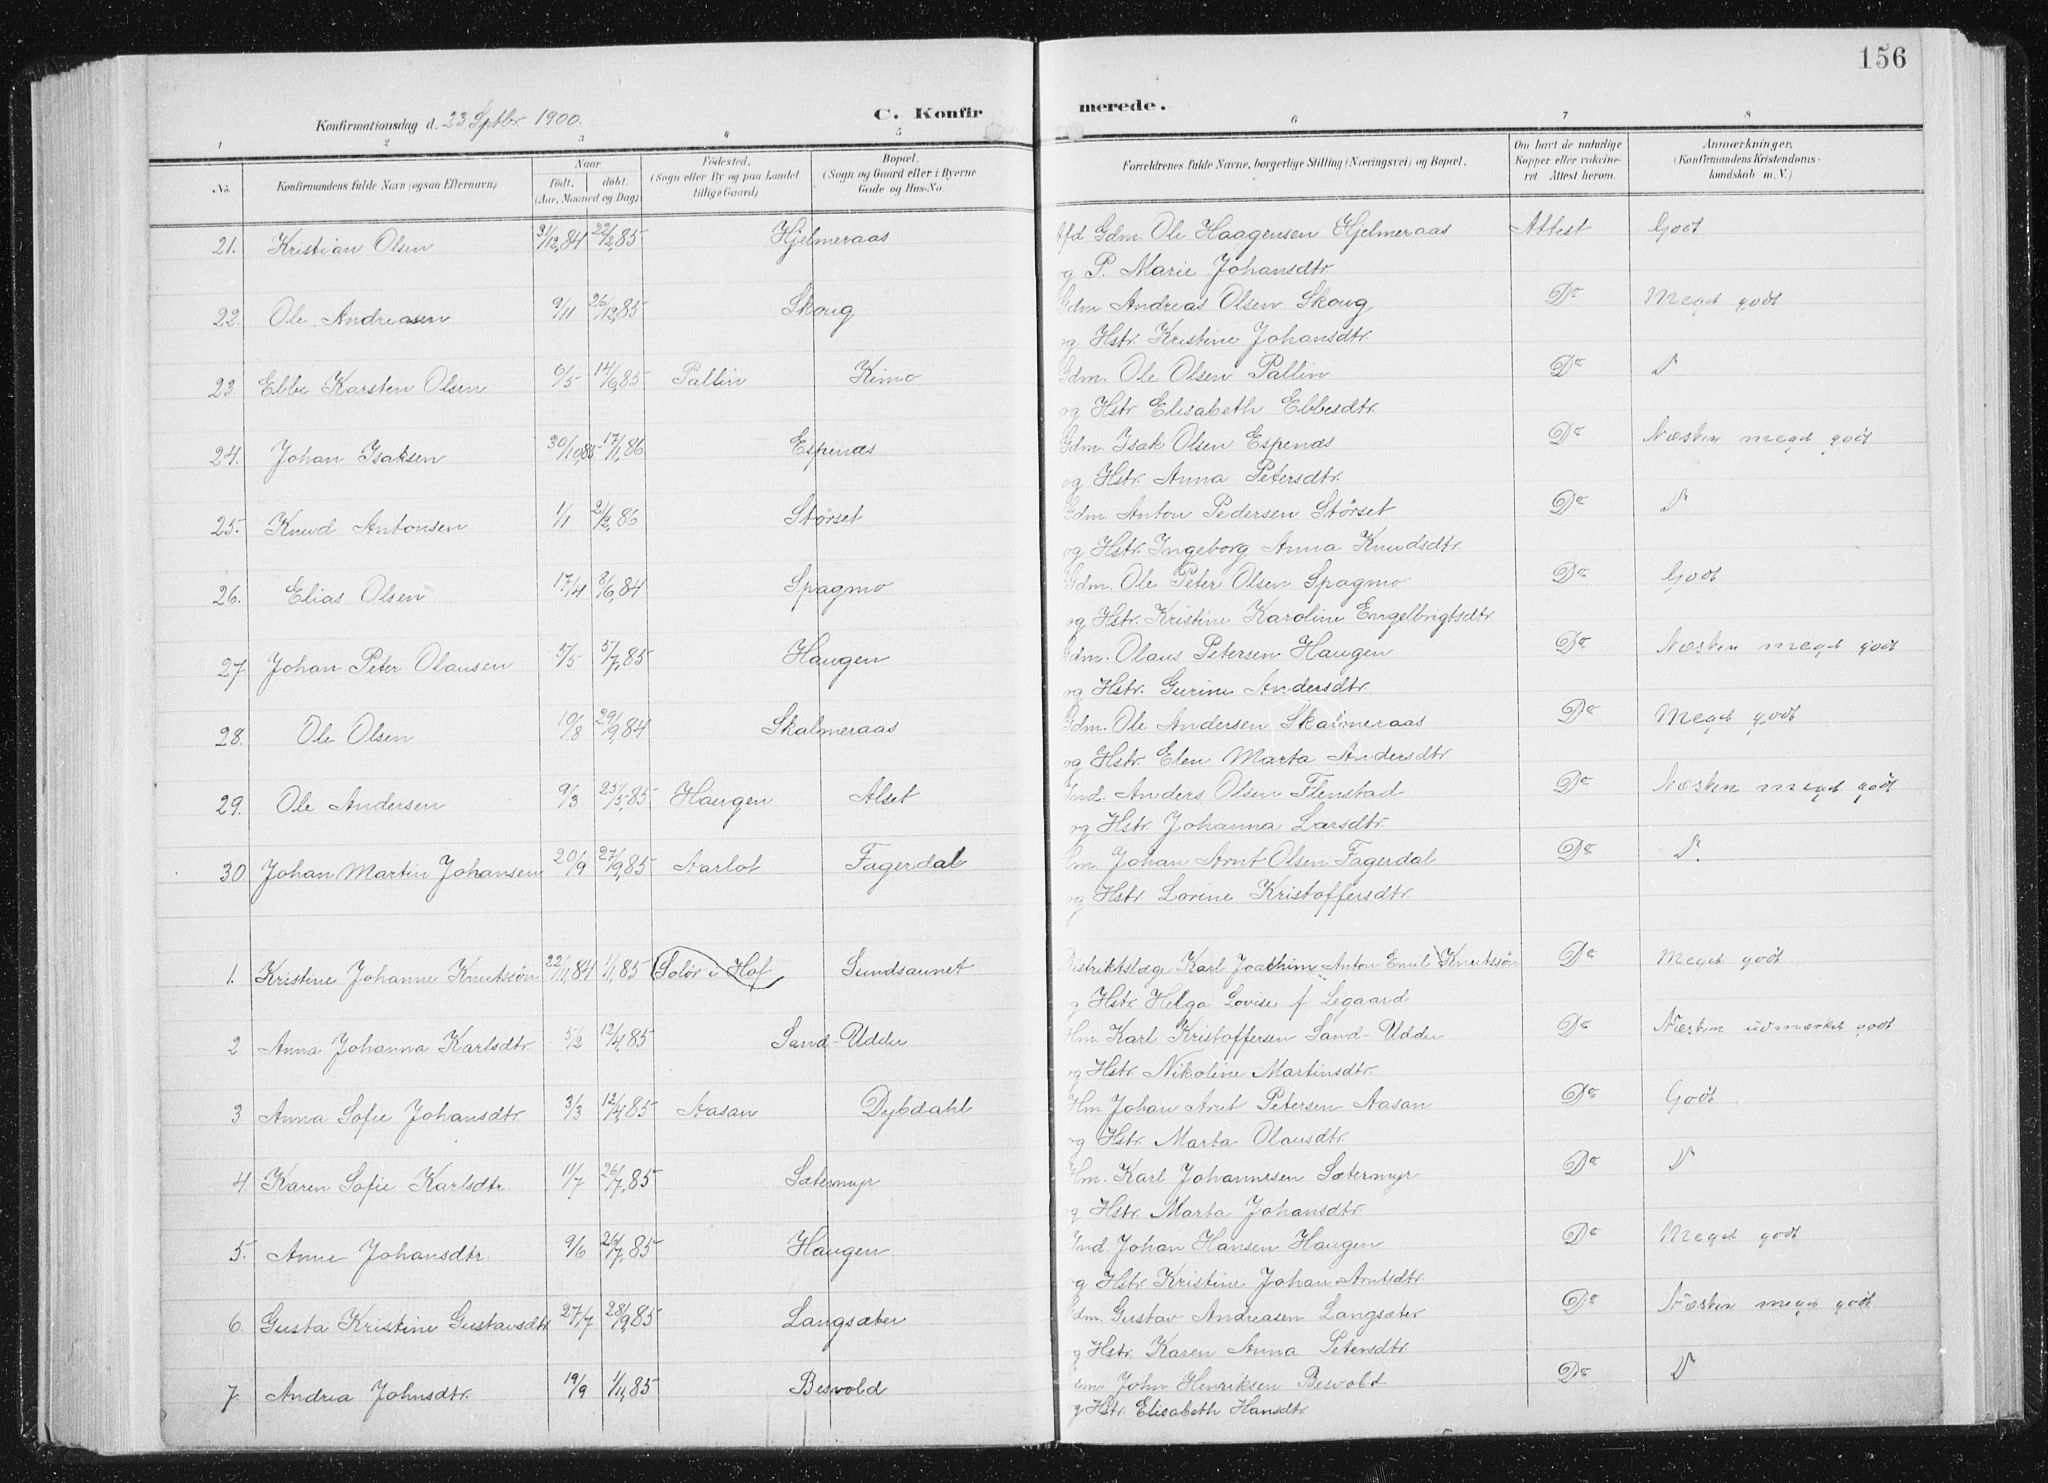 156
Konfirmationsdag d. 23 Septbr. 1900.
C. Konfirmerede.
1 2 3 4 5 6 7 8
No. Konfirmandens fulde Navn (ogsaa Efternavn) Naar Født. døbt. (Aar, Maaned og Dag) Fødested. (Sogn eller By og paa Landet tillige Gaard) Bopæl. (Sogn og Gaard eller i Byerne Gade og Hus-No. Forældrenes fulde Navne, borgerlige Stilling (Næringsvei) og Bopæl. Om havt de naturlige Kopper eller vakcineret. Attest herom. Anmærkninger. (Konfirmandens Kristendomskundskab m. V.)
21. Kristian Olsen 31/12,84 22/2,85 Hjelmeraas Gdm. Ole Haagensen Hjelmeraas Attest Godt
og P. Marie Johansdtr.
22. Ole Andreasen 9/11 26/12,85 Skoug Gdm. Andreas Olsen Skoug Do Meget godt
og Hstr. Kristine Johansdtr.
23. Ebbe Karsten Olsen 6/5 14/6,85 Pallin Kimo Gdm. Ole Olsen Pallin Do D
og Hstr. Elisabeth Ebbesdtr.
24. Johan Isaksen 30/10,85 17/1,86 Espenæs Gdm. Isak Olsen Espenæs Do Næsten meget godt
og Hstr. Anna Petersdtr.
25. Knud Antonsen 1/1 21/2,86 Størset Gdm. Anton Pedersen Størset Do D
og Hstr. Ingeborg Anna Knudsdtr.
26. Elias Olsen 17/4 8/6,84 Spagmo Gdm. Ole Peter Olsen Spagmo Do Godt
og Hstr. Kristine Karoline Engelbrigtsdtr.
27. Johan Peter Olausen 5/5 5/7,85 Haugen Gdm. Olaus Petersen Haugen Do Næsten meget godt
og Hstr. Gurine Andersdtr.
28. Ole Olsen 10/8 29/9,84 Skalmeraas Gdm. Ole Andersen Skalmeraas Do Meget godt
og Hstr. Elen Marta Andersdtr.
29. Ole Andersen 9/3 25/5,85 Haugen Alset Ind. Anders Olsen Flenstad Do Næsten meget godt
og Hstr. Johanna Larsdtr.
30. Johan Martin Johansen 20/9 27/9,85 Aarlot Fagerdal Hm. Johan Arnt Olsen Fagerdal Do D.
og Hstr. Lorine Kristoffersdtr.
1. Kristine Johanne Knutssøn 22/11,84 1/1,85 Solør i Hof Sundsaunet Distriktslæge Karl Joachim Anton Emil Knutssøn Do Meget godt
og Hstr. Helga Lovise f. Legaard
2 Anna Johanna Karlsdtr. 5/2 12/4,85 Sand-Udder Hm. Karl Kristoffersen Sand-Udder Do Næsten udmærket godt
og Hstr. Nikoline Martinsdtr.
3 Anna Sofie Johansdtr. 3/3 12/4,85 Aasan Dybdahl Hm. Johan Arnt Petersen Aasan Do Godt
og Hstr. Marta Olausdtr.
4. Karen Sofie Karlsdtr. 11/7 26/7,85 Sætermyr Hm. Karl Johannesen Sætermyr Do D
og Hstr. Marta Johansdtr.
5. Anne Johansdtr. 9/6 26/7,85 Haugen Ind. Johan Hansen Haugen Do Meget godt
og Hstr. Kristine Johan Arntsdtr.
6. Gusta Kristine Gustavsdtr. 27/7 28/9,85 Langsæter Gdm. Gustav Andreasen Langsæter Do Næsten meget godt
og Hstr. Karen Anna Petersdtr.
7. Andrea Johnsdtr. 19/9 1/11,85 Besvold Gdm. John Henriksen Besvold Do D
og Hstr. Elisabeth Hansdtr.